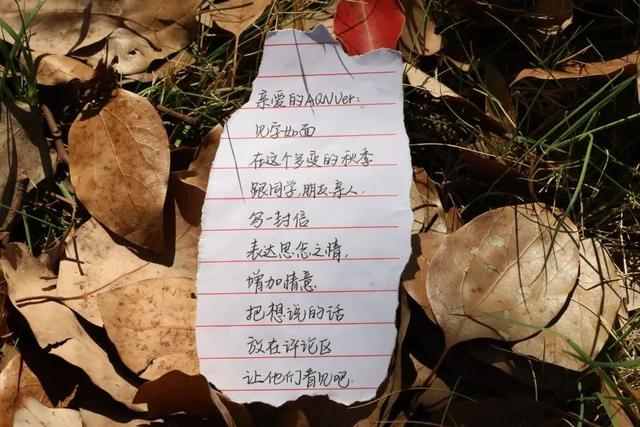 亲爱的AQNUer:
见字如面
在这个多变的秋季
跟同学,朋友亲人,
写一封信
表达思念之情,
增加情意
把想说的话
放在评论区
让他们看见吧